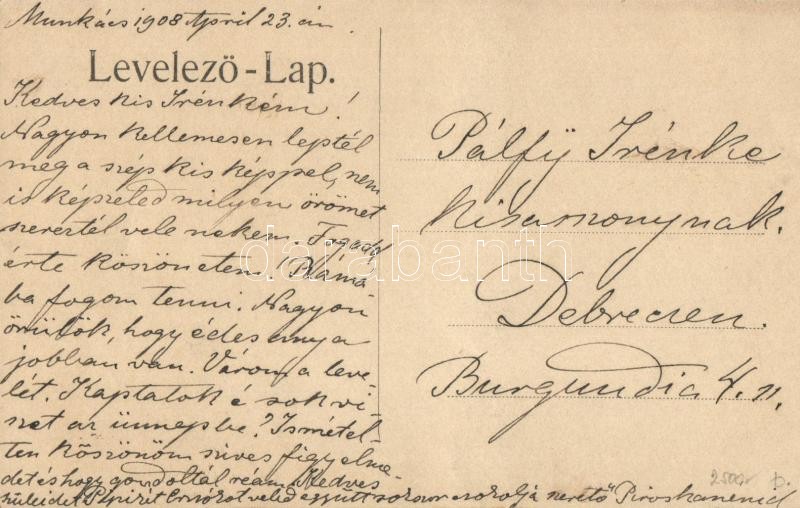 Munkács 1908 April 23.án
Levelező-Lap.
Kedves kis Irénkém!
Nagyon kellemesen leptél
meg a szép kis képpel, nem
is képzeled milyen örömet
szereztél vele nekem. Fogadd
érte köszönetem! Ráma
ba fogom tenni. Nagyon
örülök, hogy édes anya
jobban van. Várom a leve-
lét. Kaptatok é sok vi
zet az ünnepbe? Ismétel-
ten köszönöm szives figyelme-
det és hogy gondoltál reám. Kedves
szüleidet veled együtt sokszor csókolja szerető Piroskanenéd
Pálfÿ Irénke
kisasszonynak.
Debreczen.
Burgundia 4. sz.
darabanth
2500r